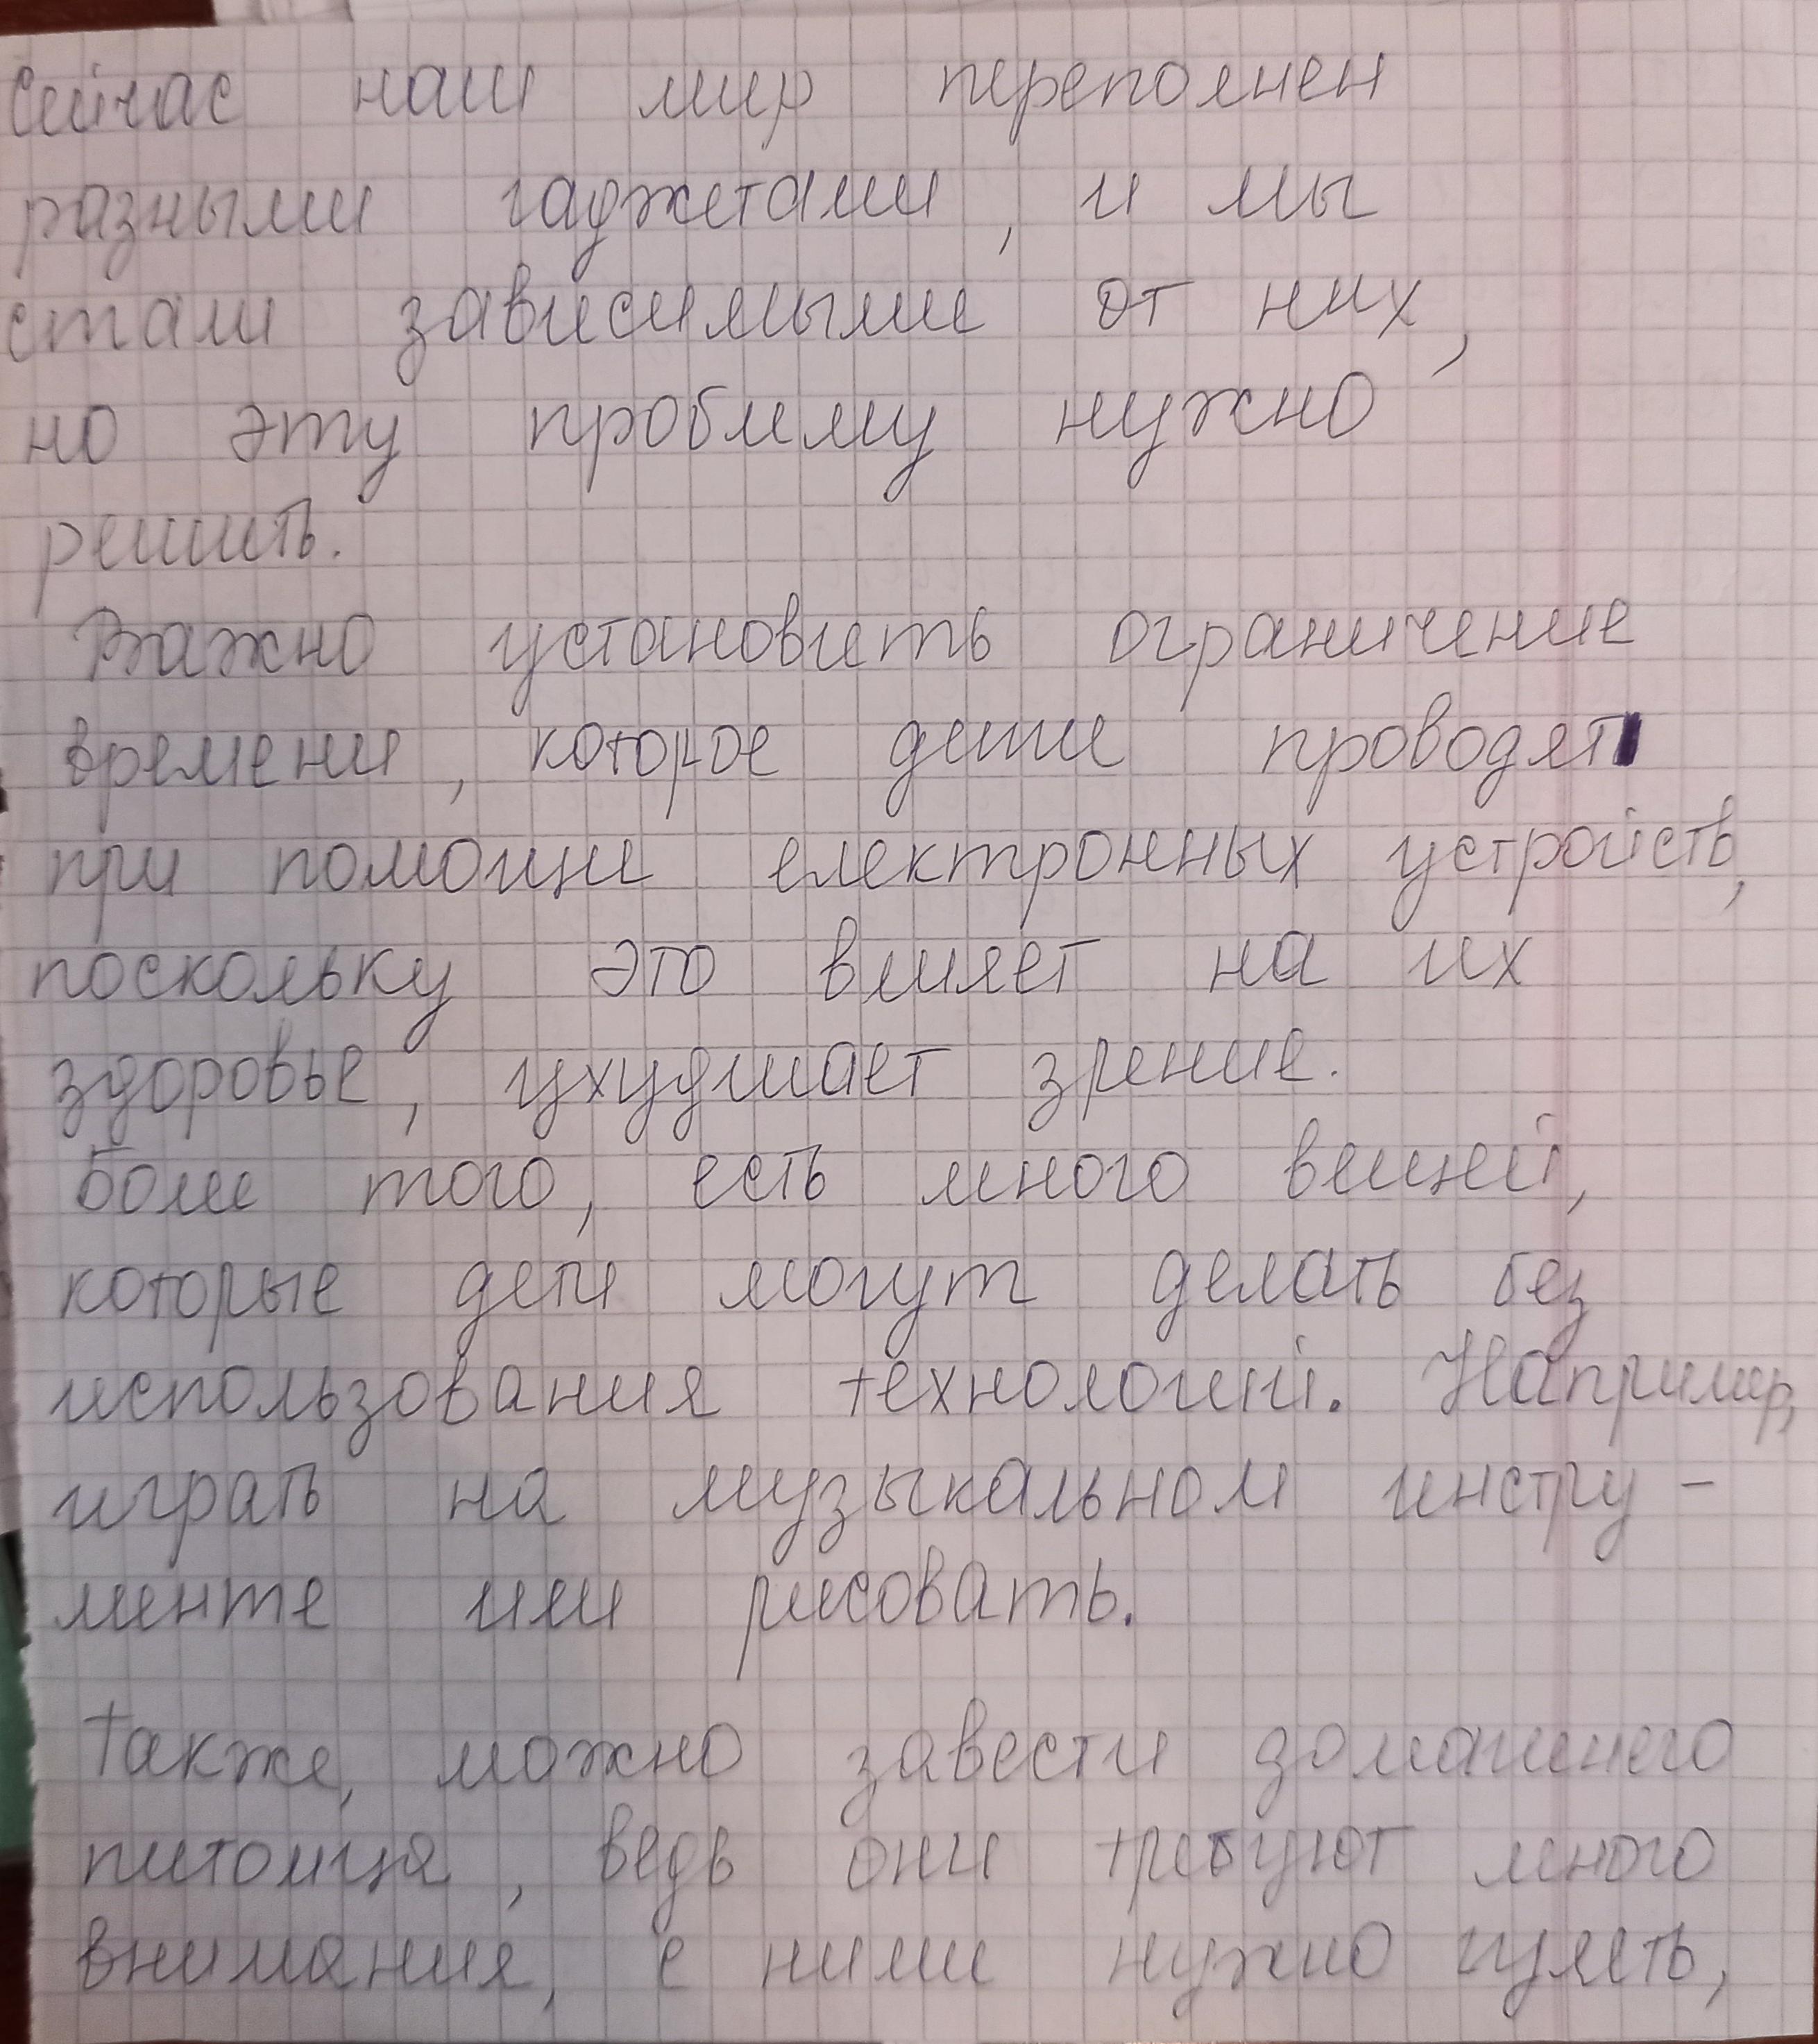 Сейчас наш мир переполнен
разными гаджетами, и мы
стали зависимыми от них,
но эту проблему нужно
решить.
Важно установить ограничение
времени, которое дети проводят
при помощи електронных устройств,
поскольку это влияет на их
здоровье, ухудшает зрение.
Более того, есть много вещей,
которые дети могут делать без
использования технологий. Например,
играть на музыкальном инстру-
менте или рисовать.
Также, можно завести домашнего
питомца, ведь они требуют много
внимания, с ними нужно гулять,